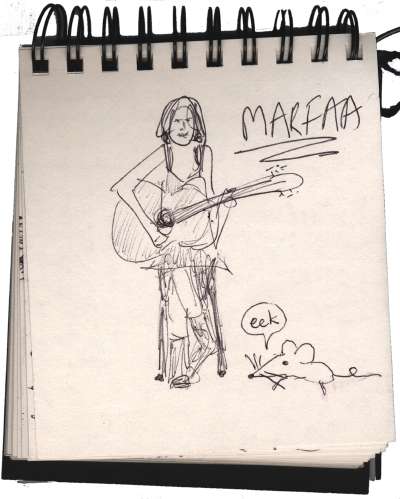 MARFATA
eek